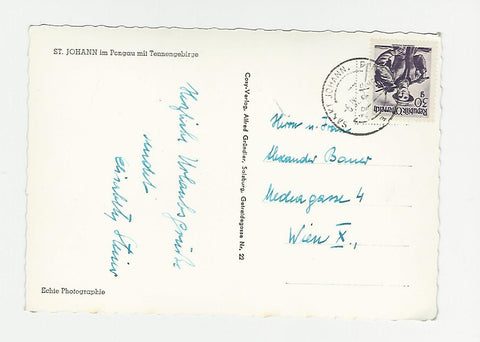 ST. JOHANN im Pongau mit Tennengebirge
Herzliche Urlaubsgrüße
sendet
Elisabeth Steiner
Echte Photographie
Cosy-Verlag, Alfred Gründler, Salzburg, Getreidegasse Nr. 22
SANKT JOHANN
30 g
Republik Österreich
Herrn u. Frau
Alexander Bauer
Mediagasse 4
Wien X.,